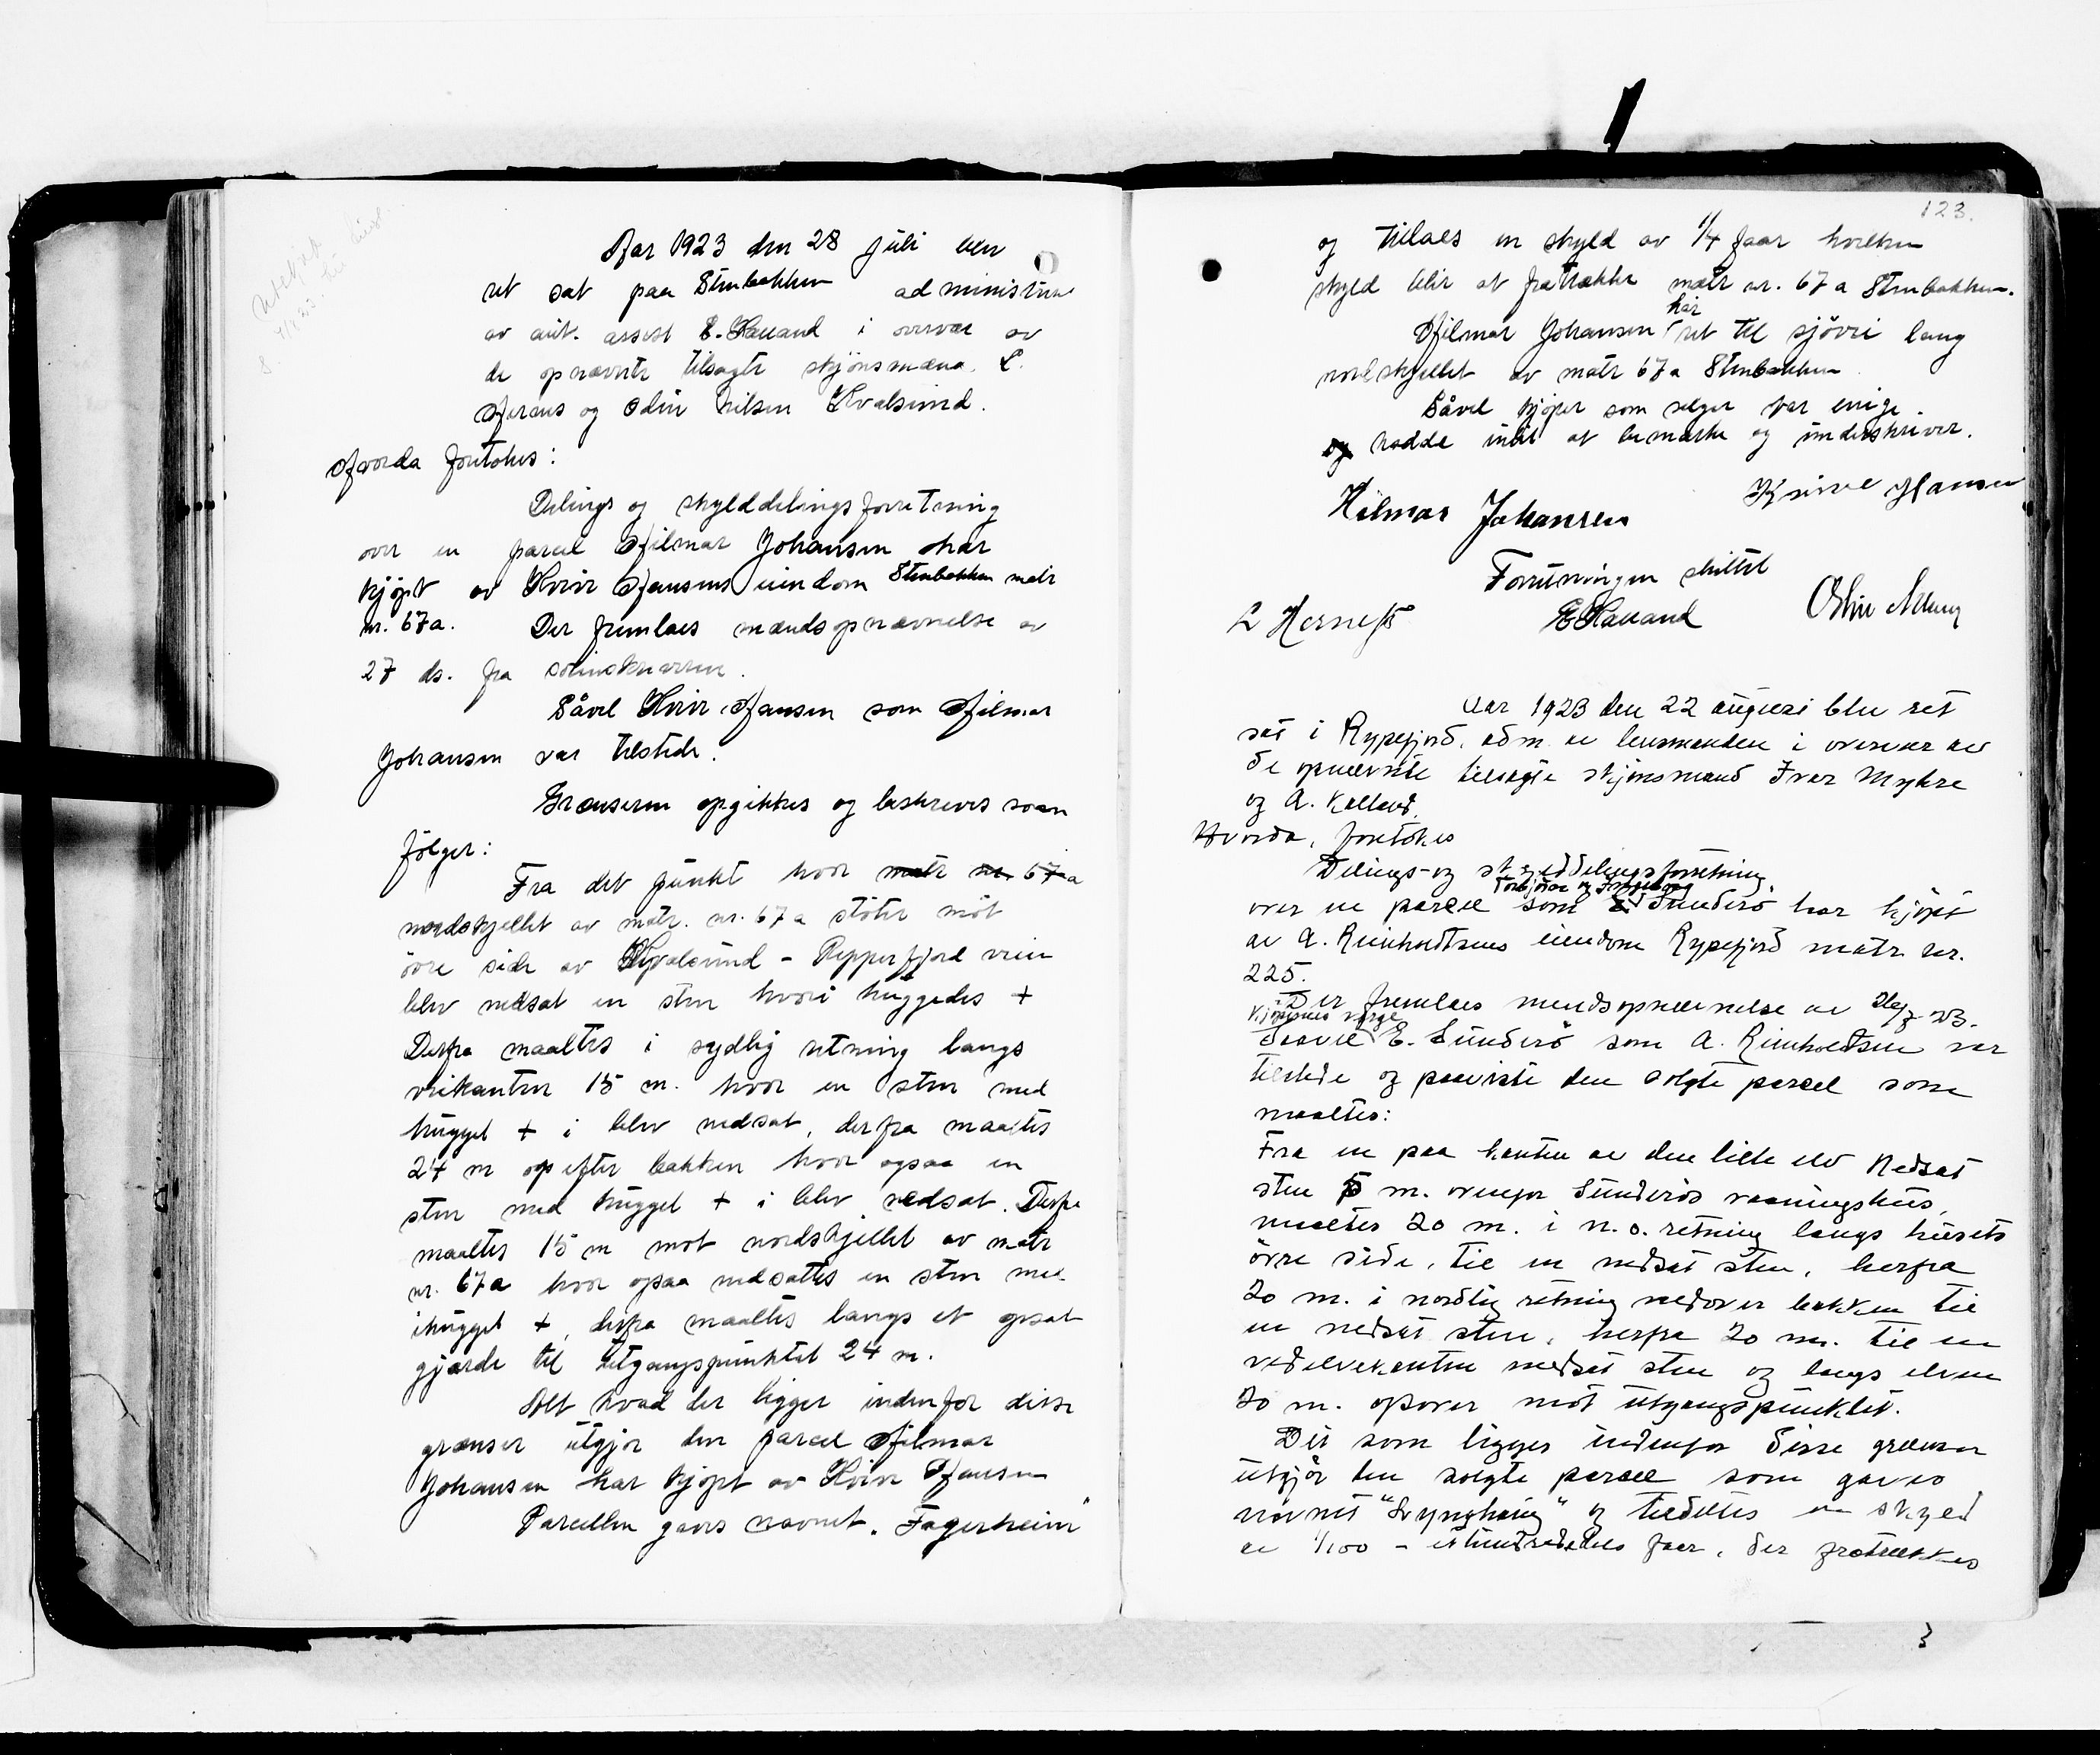 Aar 1923 den 28 juli blev
ret sat paa Stenbakken administrert
av aut. assist E. Hauand i overvær av
de opnævnte tilsagte skjönsmænd L.
Hernæs og Odin Nilsen Kvalsund.
Hvorda foretokes:
Delings og skylddelingsforretning
over en parcel Hilmar Johansen har
kjöpt av Kvive Hansens eiendom Stenbakken matr
nr. 67a. Der fremlaes mændsopnævnelse av
27 ds. fra sorenskriveren.
Såvel Kvive Hansen som Hilmar
Johansen var tilstede.
Grænserne opgikkes og beskreves som
fölger:
Fra det punkt hvor matr nr 67a
nordskjellet av matr. nr. 67a stöter mot
övre side av Kvalsund - Repperfjord veien
blev nedsat en sten hvori huggedes +
Derfra maaltes i sydlig retning langs
veikanten 15 m. hvor en sten med
hugget + i blev nedsat, derfra maaltes
24 m op efter bakken hvor ogsaa en
sten med hugget + i blev nedsat. Derfra
maaltes 15 m mot nordskjellet av matr
nr. 67a hvor ogsaa nedsattes en sten med
ihugget +, derfra maaltes langs et opsat
gjærde til utgangspunktet 24 m.
Alt hvad der ligger indenfor disse
grænser utgjör den parcel Hilmar
Johansen har kjöpt av Kvive Hansen
Parcellen gaves navnet "Fagerheim"
123.
og tillaes en skyld av 1/4 faar hvilken
skyld blir at fratrække matr nr. 67a Stenbakken.
har
Hilmar Johansen ret til sjövei lang
nordskjellet av matr 67a Stenbakken
Såvel kjöper som selger var enige.
og hadde intet at bemærke og underskriver.
Kvive Hansen
Hilmar Johansen
Forretningen sluttet
L Hernæs E Hauand Odin Nilsen
Aar 1923 den 22 august blev ret
sat i Rypefjord, adm. av lensmanden i overvær av
de opnævnte tilsagte skjönsmænd Ivar Myhre
og A. Kalland.
Hvorda, foretokes
Delings- og skylddelingsforretning
Torbjörn og Ingeborg
over en parcel som Sunderö har kjöpt
av A. Reinholdtsens eiendom Rypefjord matr. nr.
225.
Der fremlaes mendsopnævnelse av 23.
Kjöpernes værge
Saavel E. Sunderö som A. Reinholdtsen var
tilstede og paaviste den solgte parcel som
maaltes:
Fra en paa kanten av den lille elv nedsat
sten 5 m. ovenfor Sunderös vaaningshus,
maaltes 20 m. i n.o. retning langs husets
övre side, til en nedsat sten, herfra
20 m. i nordlig retning nedover bakken til
en nedsat sten, herfra 20 m. til en
ved elvekanten nedsat sten og langs elven
20 m. opover mot utgangspunktet.
Det som ligger indenfor disse grænser
utgjör den solgte parcel som gaves
navnet "Lynghaug" og tildeltes en skyld
av 1/100 - ethundrededels faar, der fratrækkes